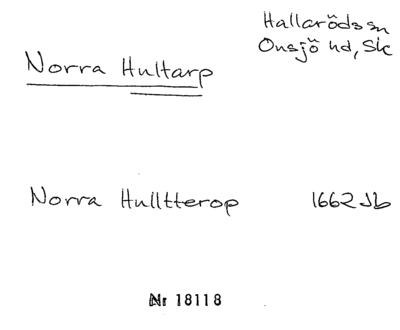 Hallaröds sn
Onsjö hd, Sk
Norra Hultarp
Norra Hulltterop 1662 Jb
Nr 18118